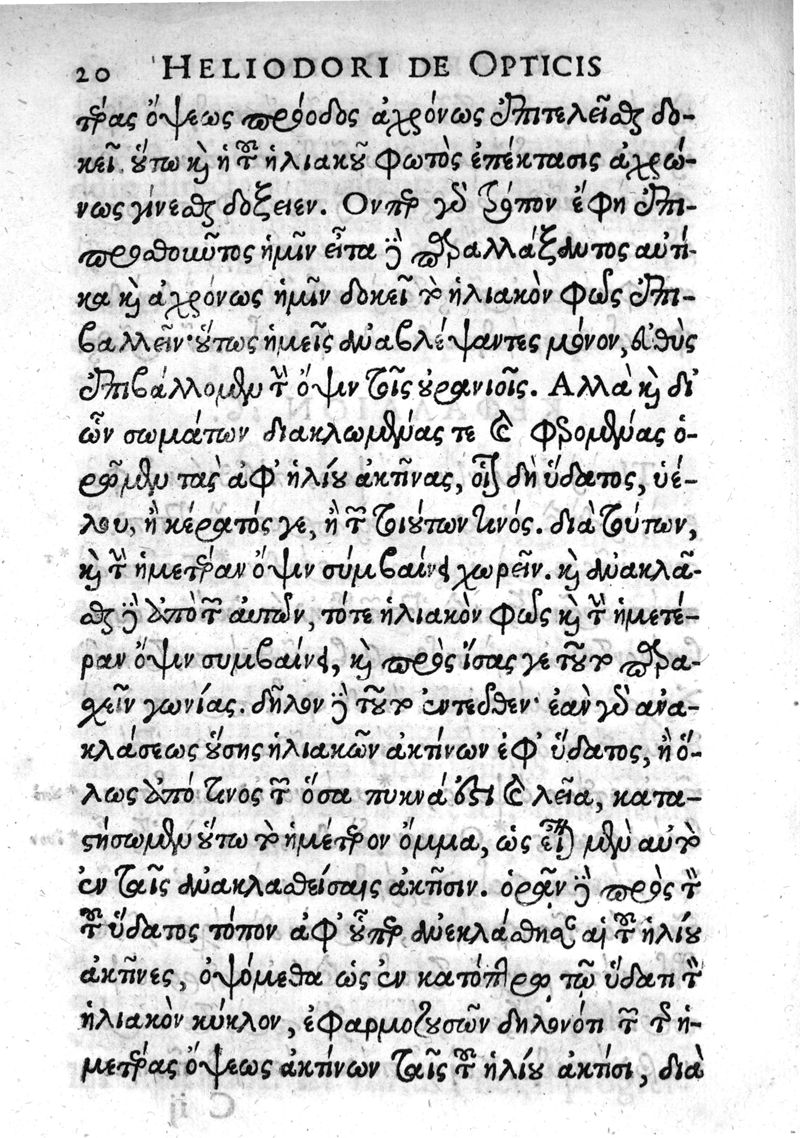 20 HELIODORI DE OPTICIS
τέρας ὄψεως πρόοδος ἀχρόνως ἐπιτελεῖσθαι δο-
κεῖ. οὕτω καὶ ἡ τοῦ ἡλιακοῦ φωτὸς ἐπέκτασις ἀχρό-
νως γίνεσθαι δοξειεν. Ονπερ γὰρ τρόπον ἔφη ἐπι-
προσθοιωῦτος ἡμῖν εἶτα δὲ παραλλάξαντος αὐτί-
κα καὶ ἀχρόνως ἡμῖν δοκεῖ τὸ ἡλιακὸν φῶς ἐπι-
βαλλεῖν· οὕτως ἡμεῖς ἀναβλέψαντες μόνον, εὐθὺς
ἐπιβάλλομεν τὴν ὄψιν τοῖς οὐρανίοις. Αλλὰ καὶ δι'
ὧν σωμάτων διακλωμένας τε καὶ φερομένας ὁ-
ρῶμεν τὰς ἀφ' ἡλίου ἀκτῖνας, οἷον δὴ ὕδατος, ὑέ-
λου, ἢ κέρατός γε, ἢ τῶν τοιούτων τινός. διὰ τούτων,
καὶ τὴν ἡμετέραν ὄψιν σύμβαίνει χωρεῖν. καὶ ἀνακλᾶ-
σθαι δὲ ἀπὸ τῶν αὐτῶν, τότε ἡλιακὸν φῶς καὶ τὴν ἡμετέ-
ραν ὄψιν συμβαίνει, καὶ πρὸς ἴσας γε τοῦτο πα
χεῖν γωνίας. δῆλον δὲ τοῦτο ἐντεῦθεν· ἐὰν γὰρ ἀνα-
κλάσεως οὔσης ἡλιακῶν ἀκτίνων ἐφ' ὕδατος, ἢ ὅ-
λως ἀπό τινος τῶν ὅσα πυκνά ἐστι καὶ λεῖα, κατα-
στήσωμεν οὕτω τὸ ἡμέτερον ὄμμα, ὡς ἐπὶ μὲν αὐτὸ
ἐν ταῖς ἀνακλαθείσαις ἀκτῖσιν. ὁρᾶν δὲ πρὸς τὸν
τοῦ ὕδατος τόπον ἀφ' οὗπερ ἀνεκλάσθησαν αἱ τοῦ ἡλίου
ἀκτῖνες, ὀψόμεθα ὡς ἐν κατόπτρῳ τῷ ὕδατι τὸν
ἡλιακὸν κύκλον, ἐφαρμοζουσῶν δηλονότι τῶν τῆς ἡ-
μετέρας ὄψεως ἀκτίνων ταῖς τοῦ ἡλίου ἀκτῖσι, διὰ